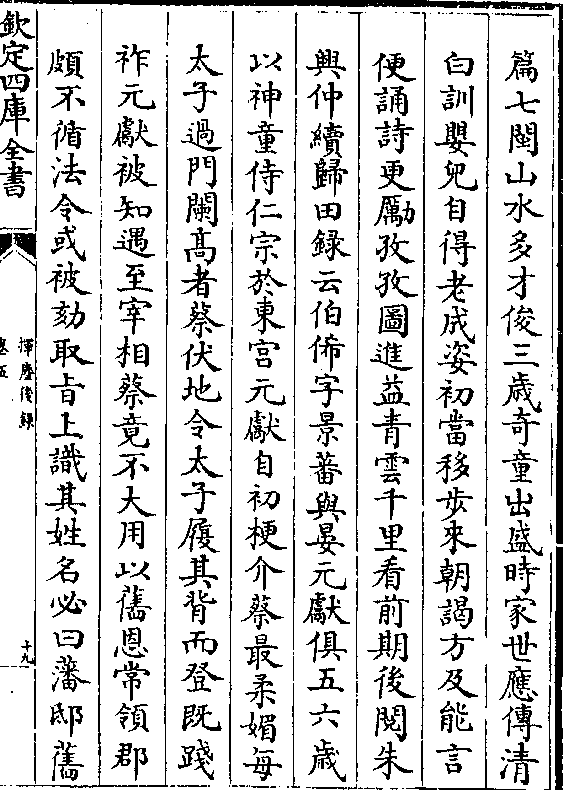 篇七閩山水多才俊三歳奇童出盛時家世應傳清
白訓嬰兒自得老成姿初當移步來朝謁方及能言
便誦詩更勵孜孜圖進益青雲千里看前期後閱朱
興仲續歸田録云伯俙字景蕃與晏元獻俱五六歳
以神童侍仁宗於東宫元獻自初梗介蔡最柔媚每
太子過門闑髙者蔡伏地令太子履其背而登既踐
祚元獻被知遇至宰相蔡竟不大用以舊恩常領郡
頗不循法令或被劾取旨上識其姓名必曰藩邸舊
欽定四庫全書
揮麈後録
卷五
十九